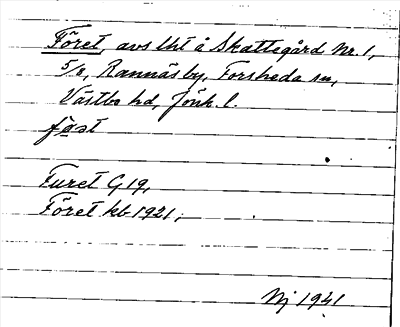 Föret, avs lht å Skattegård Nr. 1,
5/8, Rannäs by, Forsheda sn,
Västbo hd, Jönk. l.
Furet G 19,
Föret kb 1921,
Nj 1941